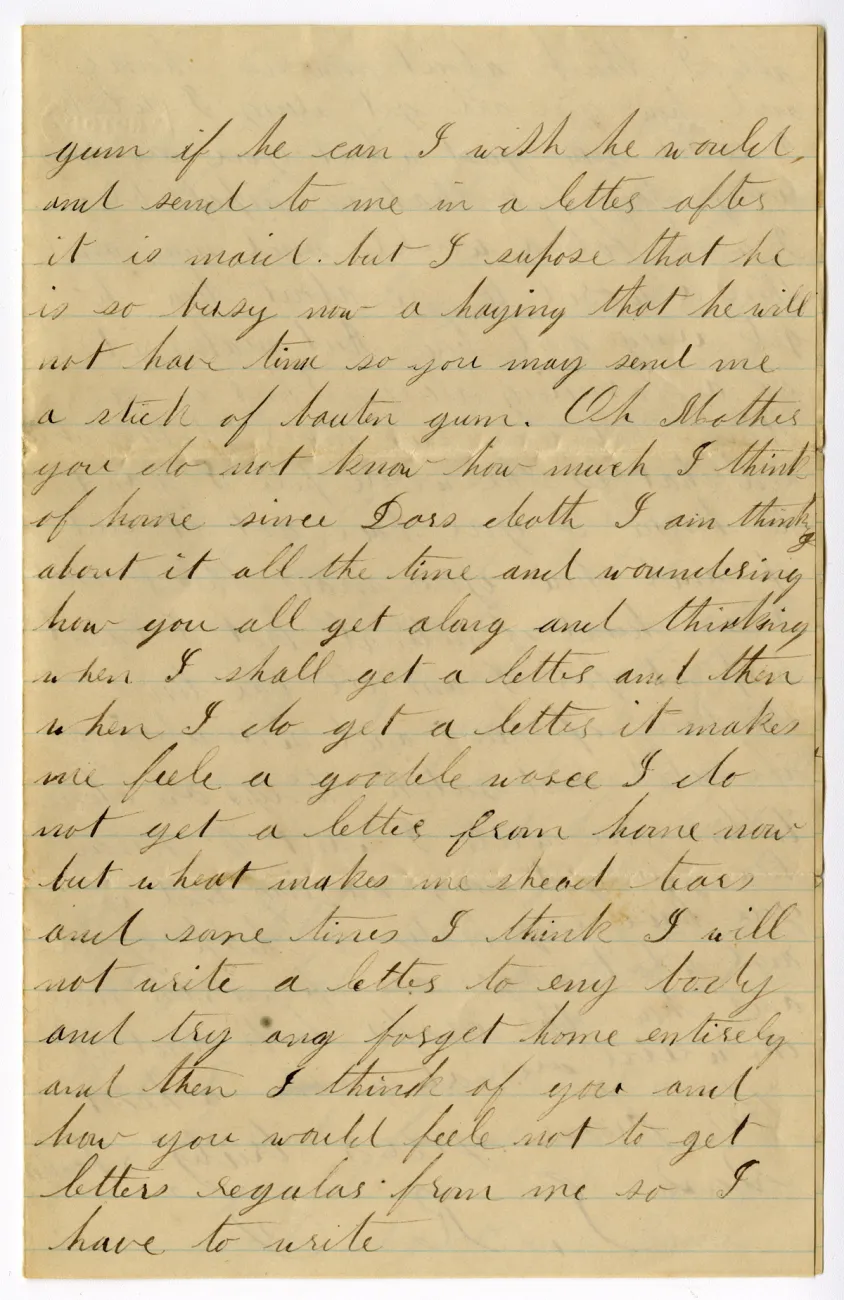 gum if he can I wish he would,
and send to me in a letter after
it is maid. but I supose that he
is so busy now a haying that he will
not have time so you may send me
a stick of bouten gum. Oh Mother
you do not know how much I think
of home since Dors death I am thinkg
about it all the time and woundering
how you all get along and thinking
when I shall get a letter and then
when I do get a letter it makes
me feele a goodele worce I do
not get a letter from home now
but wheat makes me shead tears
and some times I think I will
not write a letter to eny body
and try ang forget home entirely
and then I think of you and
how you would feele not to get
letters regular from me so I
have to write